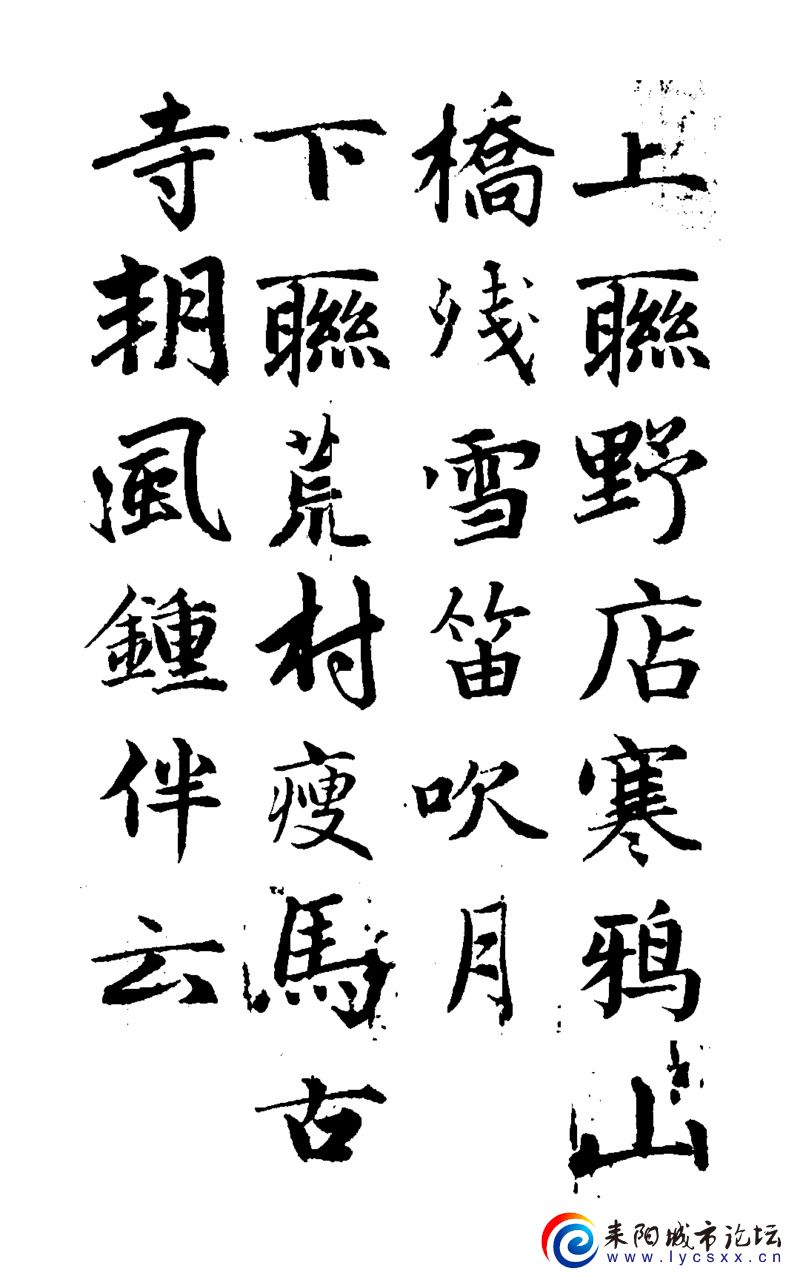 上聯野店寒鴉山
橋残雪笛吹月
下聯荒村瘦馬古
寺朝風鍾伴云
耒阳城市论坛
www.lycsxx.cn